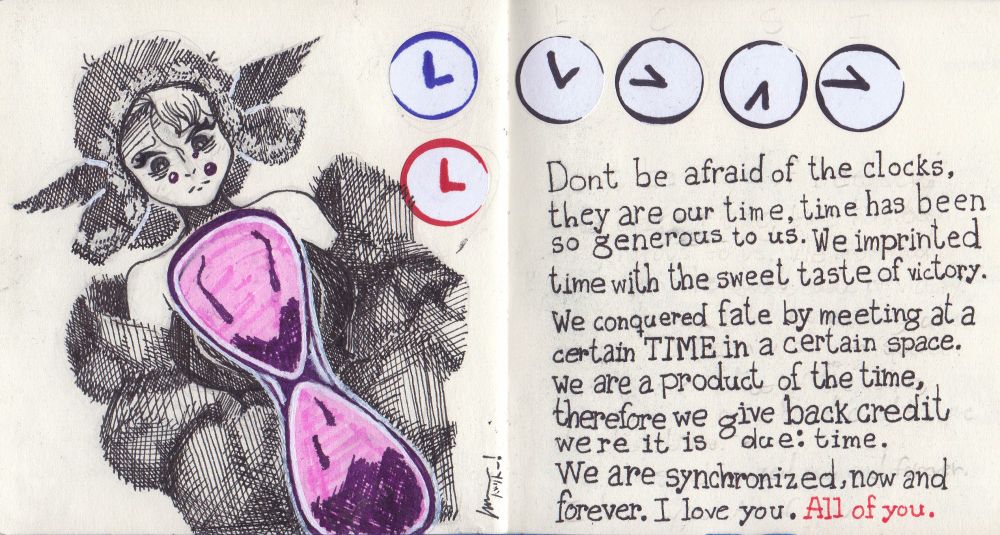 Dont be afraid of the clocks,
they are our time, time has been
so generous to us. We imprinted
time with the sweet taste of victory.
We conquered fate by meeting at a
certain TIME in a certain space.
we are a product of the time,
therefore we give back credit
were it is due: time.
We are synchronized, now and
forever. I love you. All of you.